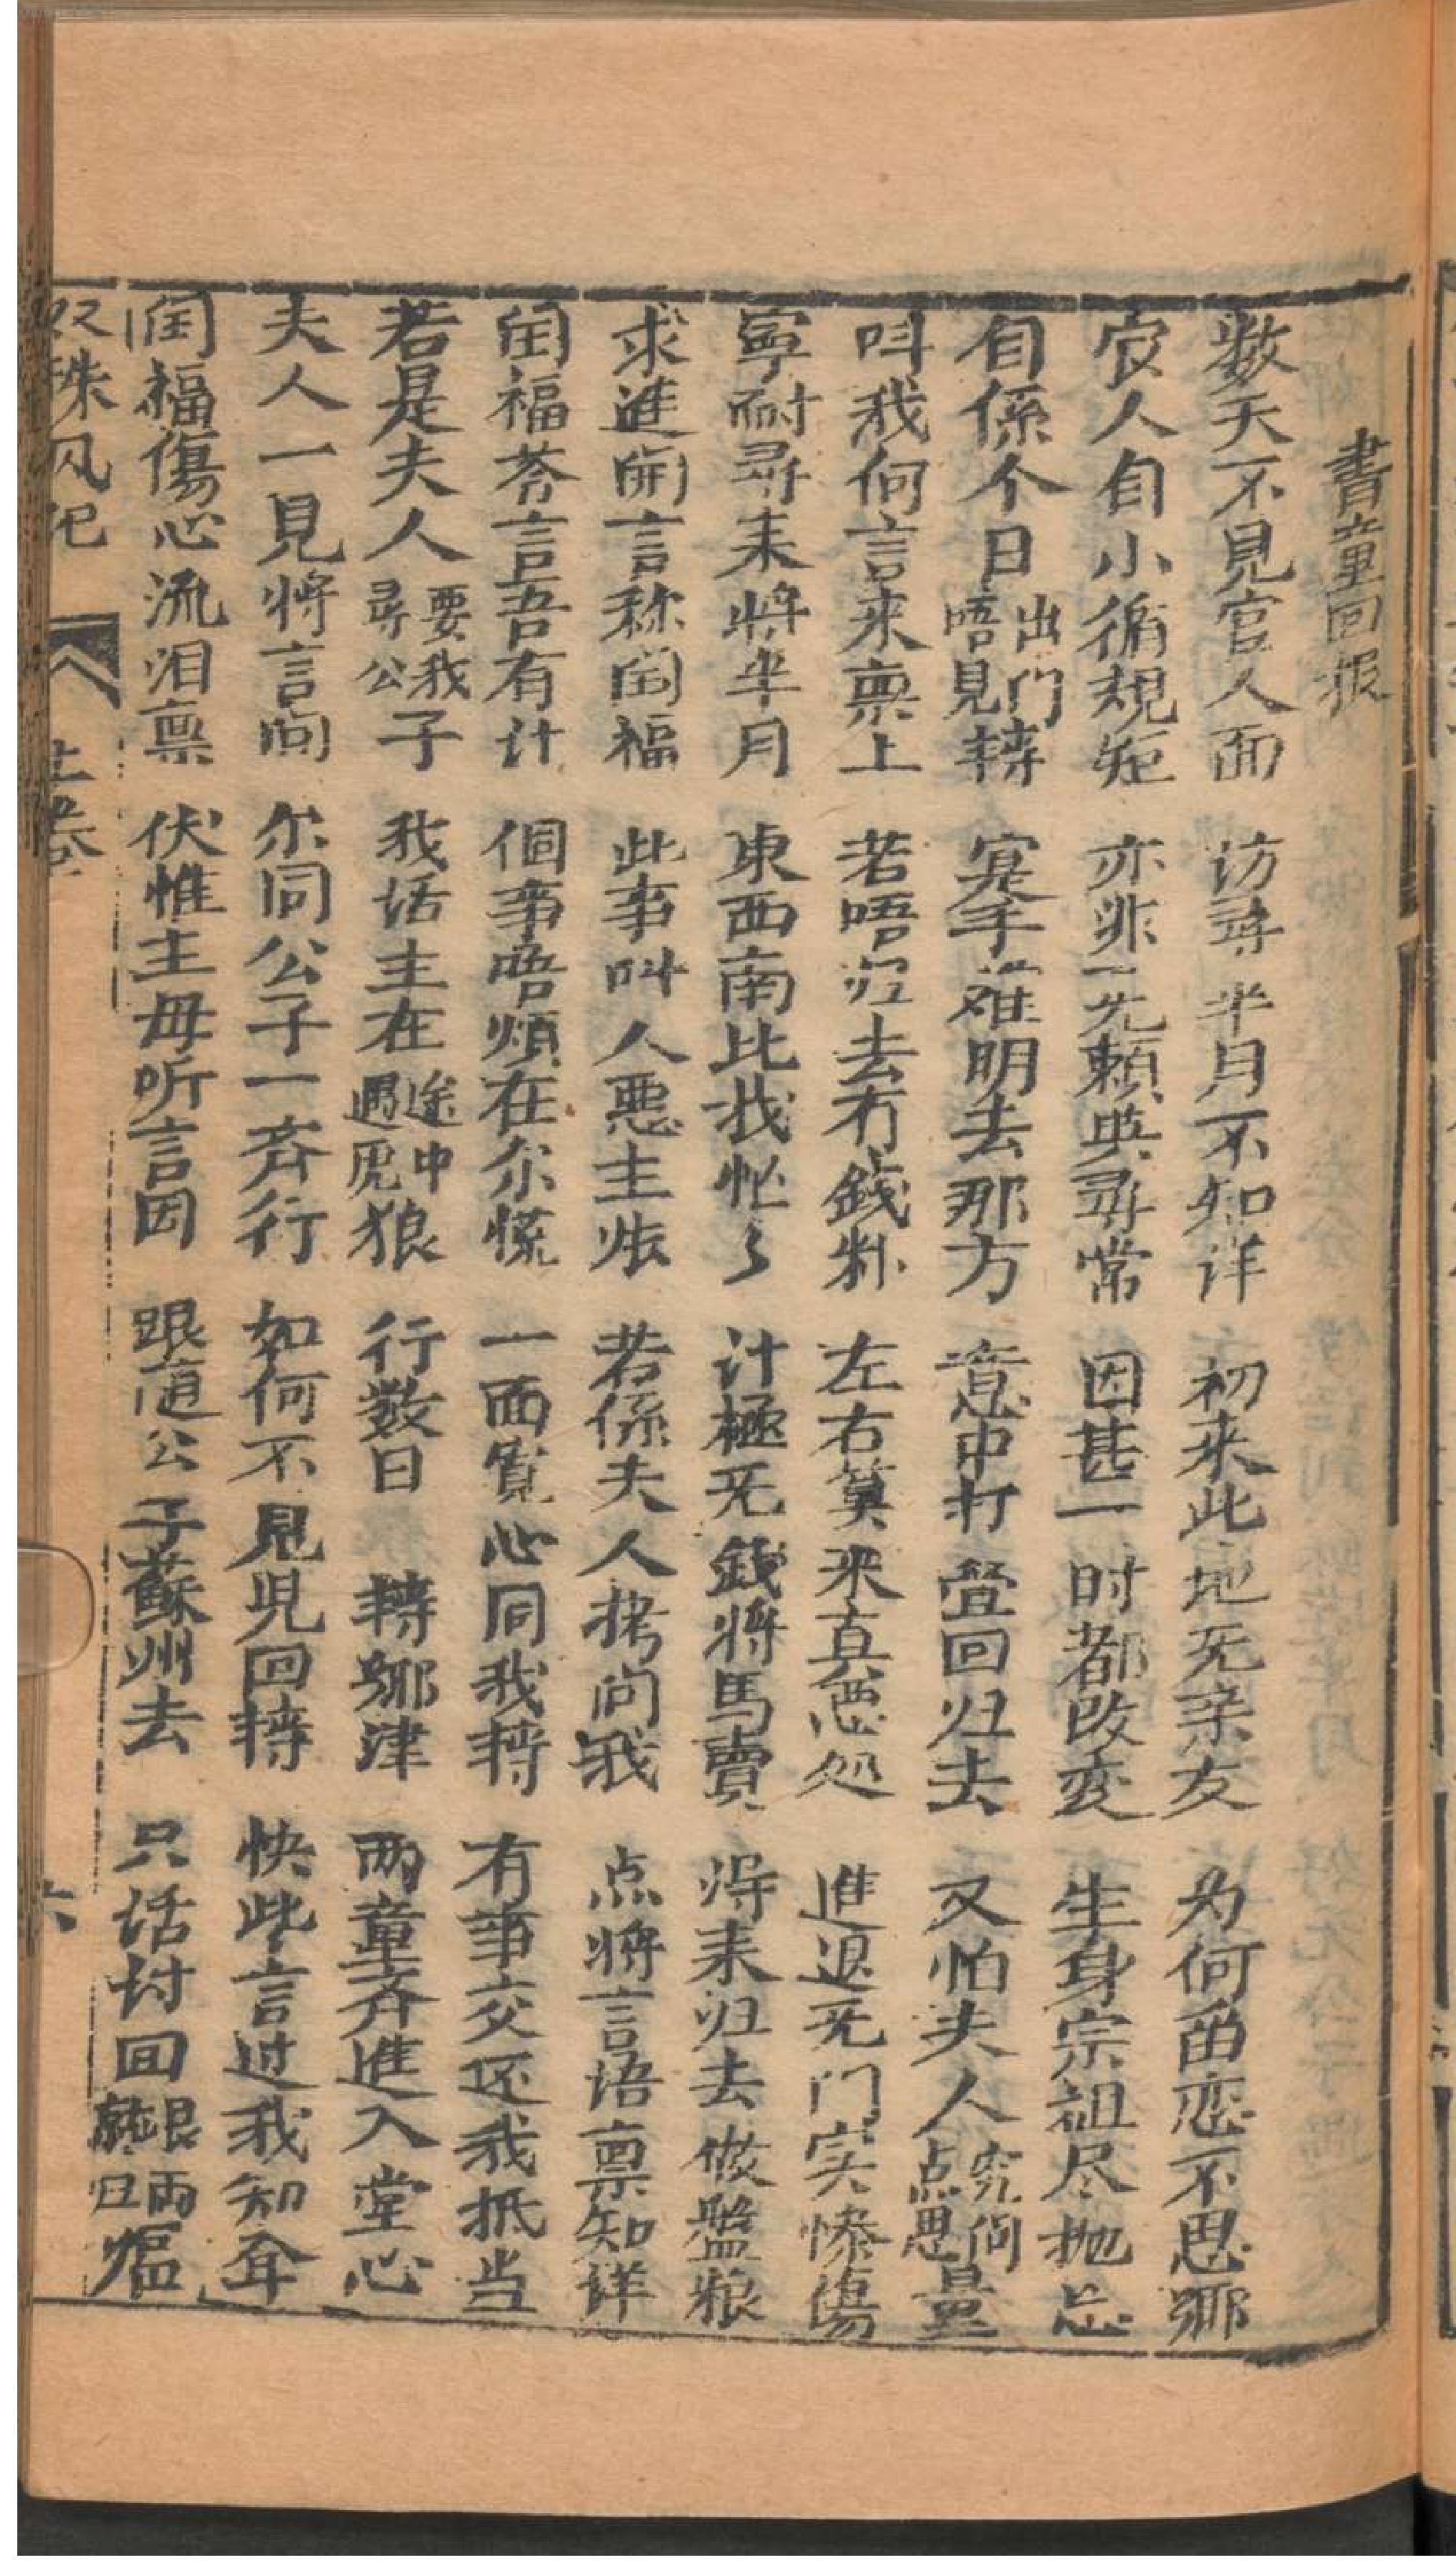 書童回报
数天不見官人面 访尋半月不知详 初来此地无亲友 为何留恋不思鄉
官人自小循規矩 亦非一无賴與尋常 因甚一时都改变 生身宗祖尽抛忘
自係个日出门唔見轉 寔手难明去那方 意中打叠回归去 又怕夫人究问点思量
叫我何言来禀上 若唔归去冇錢粮 左右莫来真恶处 進退无门实惨傷
寧耐尋来将半月 東西南北我忙々 计極无錢将馬賣 得来归去做盤粮
求進開言称闰福 此事叫人恶主张 若係夫人拷问我 点将言语禀知详
闰福答言吾有计 個事唔煩在尔慌 一面寬心同我轉 有事交还我抵当
若是夫人要我尋公子 我话主在途中遇虎狼 行数日 轉鄉津 两童齐進入堂心
夫人一見将言问 尔同公子一齐行 如何不見児回轉 快些言过我知音
闰福傷心流泪禀 伏惟主毋听言因 跟随公子蘇州去 只话讨回 两归瘟
双珠凤记 上卷 六